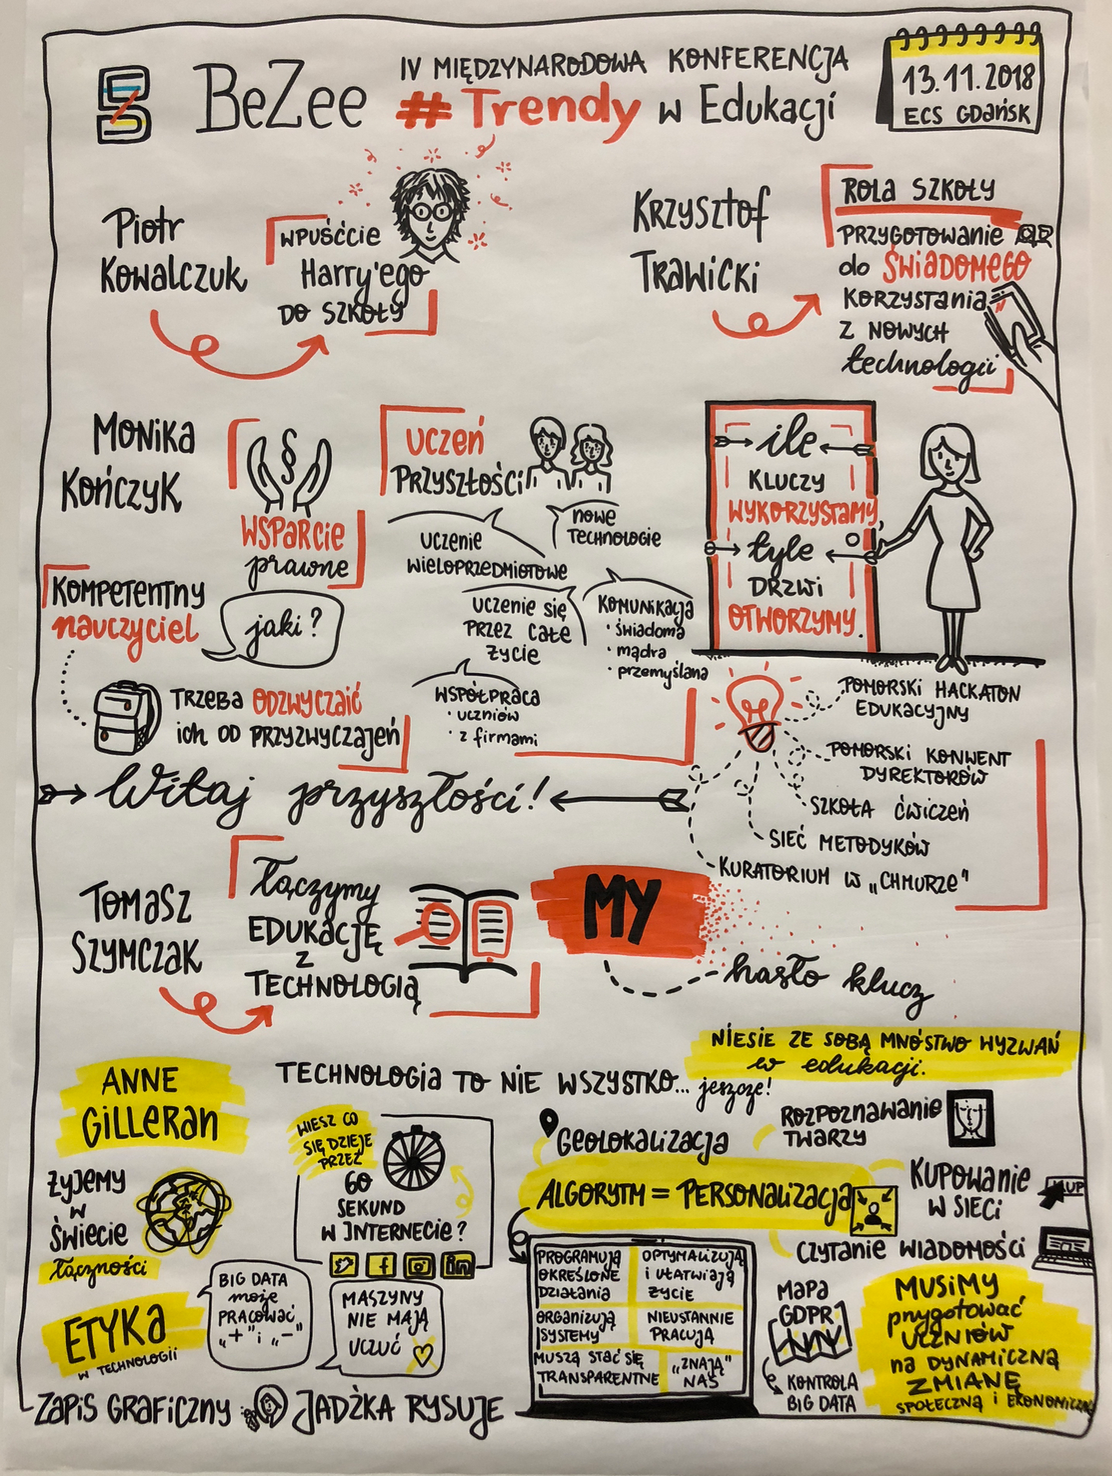 BeZee
IV MIĘDZYNARODOWA KONFERENCJA
#Trendy w Edukacji
13.11.2018
ECS GDAŃSK
Piotr
Kowalczuk
WPUŚĆCIE
Harry'ego
DO SZKOŁY
KRZYSZTOF
TRAWICKI
ROLA SZKOŁY
PRZYGOTOWANIE
do ŚWIADOMEGO
KORZYSTANIA
Z NOWYCH
technologii
MONIKA
KOŃCZYK
§
WSPARCIE
prawne
KOMPETENTNY
nauczyciel
jaki?
TRZEBA ODZWYCZAIĆ
ich OD PRZYZWYCZAJEŃ
UCZEŃ
PRZYSZŁOŚCI
UCZENIE
WIELOPRZEDMIOTOWE
NOWE
TECHNOLOGIE
UCZENIE SIĘ
PRZEZ CAŁE
ŻYCIE
KOMUNIKACJA
· świadoma
· mądra
· przemyślana
WSPÓŁPRACA
· uczniów
· z firmami
ile
KLUCZY
WYKORZYSTAMY,
tyle
DRZWI
OTWORZYMY.
POMORSKI HACKATON
EDUKACYJNY
POMORSKI KONWENT
DYREKTORÓW
SZKOŁA ĆWICZEŃ
SIEĆ METODYKÓW
KURATORIUM W „CHMURZE"
Witaj przyszłości!
TOMASZ
SZYMCZAK
Łączymy
EDUKACJĘ
Z
TECHNOLOGIĄ
MY
hasło klucz
ANNE
GILLERAN
TECHNOLOGIA TO NIE WSZYSTKO... jeszcze!
NIESIE ZE SOBĄ MNÓSTWO WYZWAŃ
w edukacji.
ŻYJEMY
W
ŚWIECIE
łączności
WIESZ CO
SIĘ DZIEJE
PRZEZ
60
SEKUND
W INTERNECIE?
f
in
GEOLOKALIZACJA
ROZPOZNAWANIE
TWARZY
ALGORYTM = PERSONALIZACJA
KUPOWANIE
W SIECI
KUP
CZYTANIE WIADOMOŚCI
ETYKA
W TECHNOLOGII
BIG DATA
może
PRACOWAĆ
„+" i „-"
MASZYNY
NIE MAJĄ
UCZUĆ
PROGRAMUJĄ
OKREŚLONE
DZIAŁANIA
OPTYMALIZUJĄ
I UŁATWIAJĄ
ŻYCIE
ORGANIZUJĄ
SYSTEMY
NIEUSTANNIE
PRACUJĄ
MUSZĄ STAĆ SIĘ
TRANSPARENTNE
„ZNAJĄ"
NAS
MAPA
GDPR
KONTROLA
BIG DATA
MUSIMY
przygotować
UCZNIÓW
na DYNAMICZNĄ
ZMIANĘ
SPOŁECZNĄ i EKONOMICZNĄ
ZAPIS GRAFICZNY JADŹKA RYSUJE